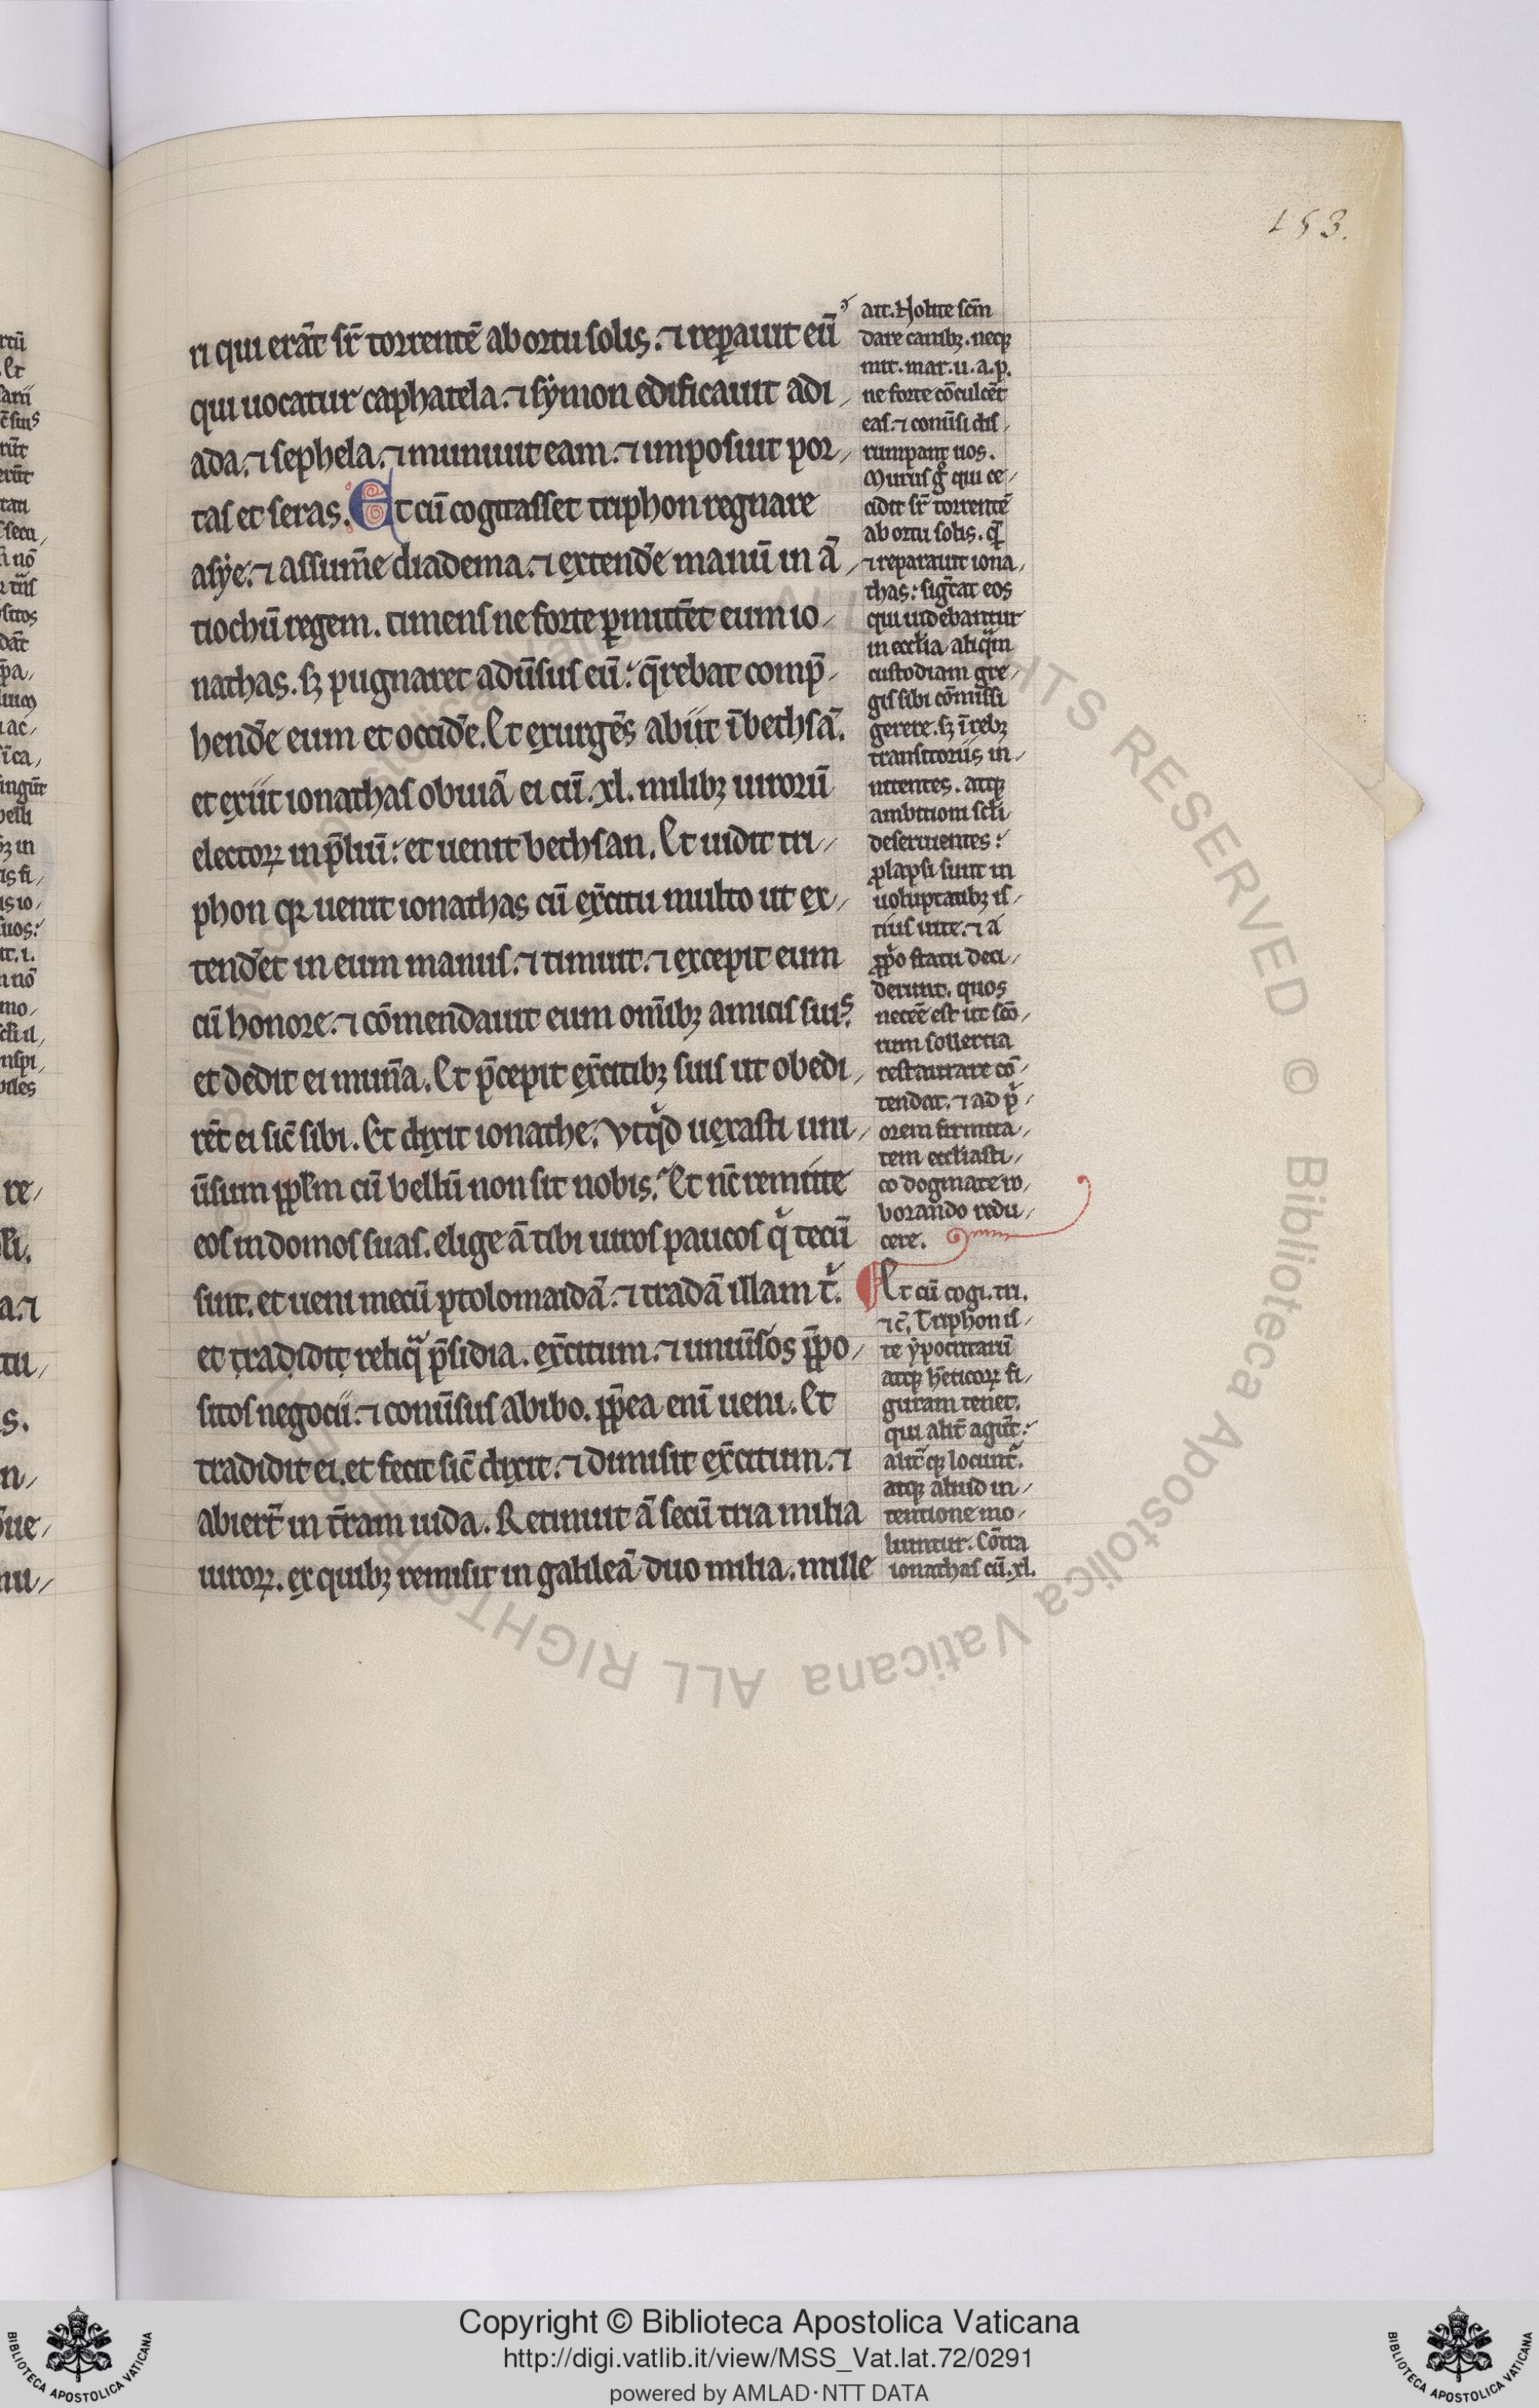 153.
ri qui erãt sr̃ torrentẽ ab ortu solis. ⁊ reꝑauit eũ
qui uocatur caphatela. ⁊ sẏmon edificauit adi
ada. ⁊ sephela. ⁊ muniuit eam. ⁊ imposuit por
tas et seras. Et cũ cogitasset triphon regnare
asẏe. ⁊ assum̃e diadema. ⁊ extend̃e manũ in ã
tiochũ regem. timens ne forte ꝑmitt̃et eum io
nathas. sꝫ pugnaret adũsus eũ. q̃rebat comp̃
hend̃e eum et occid̃e. Et exurgẽs abiit ĩ bethsã.
et exiit ionathas obuiã ei cũ .xl. milibꝫ uirorũ
electoꝝ in p̃liũ. et uenit bethsan. Et uidit tri
phon qꝛ uenit ionathas cũ ex̃citu multo ut ex
tend̃et in eum manus. ⁊ timuit. ⁊ excepit eum
cũ honore. ⁊ cõmendauit eum om̃ibꝫ amicis suis.
et dedit ei muña. Et p̃cepit ex̃citibꝫ suis ut obedi
rẽt ei sic̃ sibi. Et dixit ionathe. Vtqͥd uexasti uni
ũsum pp̃lm cũ bellũ non sit nobis. Et nc̃ remitte
eos in domos suas. elige ã tibi uiros paucos qͥ tecũ
sint. et ueni mecũ ptolomaidã. ⁊ tradã illam tͥ.
et tradidit reliqͣ p̃sidia. ex̃citum. ⁊ uniũsos p̃po
sitos negocii. ⁊ conũsus abibo. ꝓp̃ea eni᷉ ueni. Et
tradidit ei. et fecit sic̃ dixit. ⁊ dimisit ex̃citum. ⁊
abiert̃ in t̃ram iuda. Retinuit ã secũ tria milia
uiroꝝ. ex quibꝫ remisit in galileã duo milia. mille
ait. Nolite sc̃m
dare canibꝫ. neqꝫ
mit. mar. u. a. p.
ne forte cõculcẽt
eas. ⁊ conũsi dis
rumpant uos.
Murus g̊ qui ce
cidit sr̃ torrentẽ
ab ortu solis. q̃
⁊ reparauit iona
thas. sig̃cat eos
qui uidebantur
in eccl̃ia aliqͣm
custodiam gre
gis sibi cõmissi
gerere. sꝫ ĩ rebꝫ
transitoriis in
nitentes. atqꝫ
ambitioni scl̃i
deseruientes.
ꝓlapsi sunt in
uoluptatibꝫ is
tius uite. ⁊ a
ꝓp̊o statu deci
derunt. quos
necc̃e est ut sc̃o
rum sollertia
restaurare cõ
tendat. ⁊ ad pͥ
orem firmita
tem eccl̃iasti
co dogmate ro
borando redu
cere.
Et cũ cogi. tri.
⁊c̃. Triphon is
te ẏpocritarũ
atqꝫ h̃eticoꝝ fi
guram tenet.
qui alit̃ agũt.
alit̃qꝫ locunt̃.
atqꝫ aliud in
tentione mo
liuntur. Cõtra
ionathas cũ .xl.
Copyright © Biblioteca Apostolica Vaticana
http://digi.vatlib.it/view/MSS_Vat.lat.72/0291
powered by AMLAD·NTT DATA
BIBLIOTECA APOSTOLICA VATICANA
BIBLIOTECA APOSTOLICA VATICANA